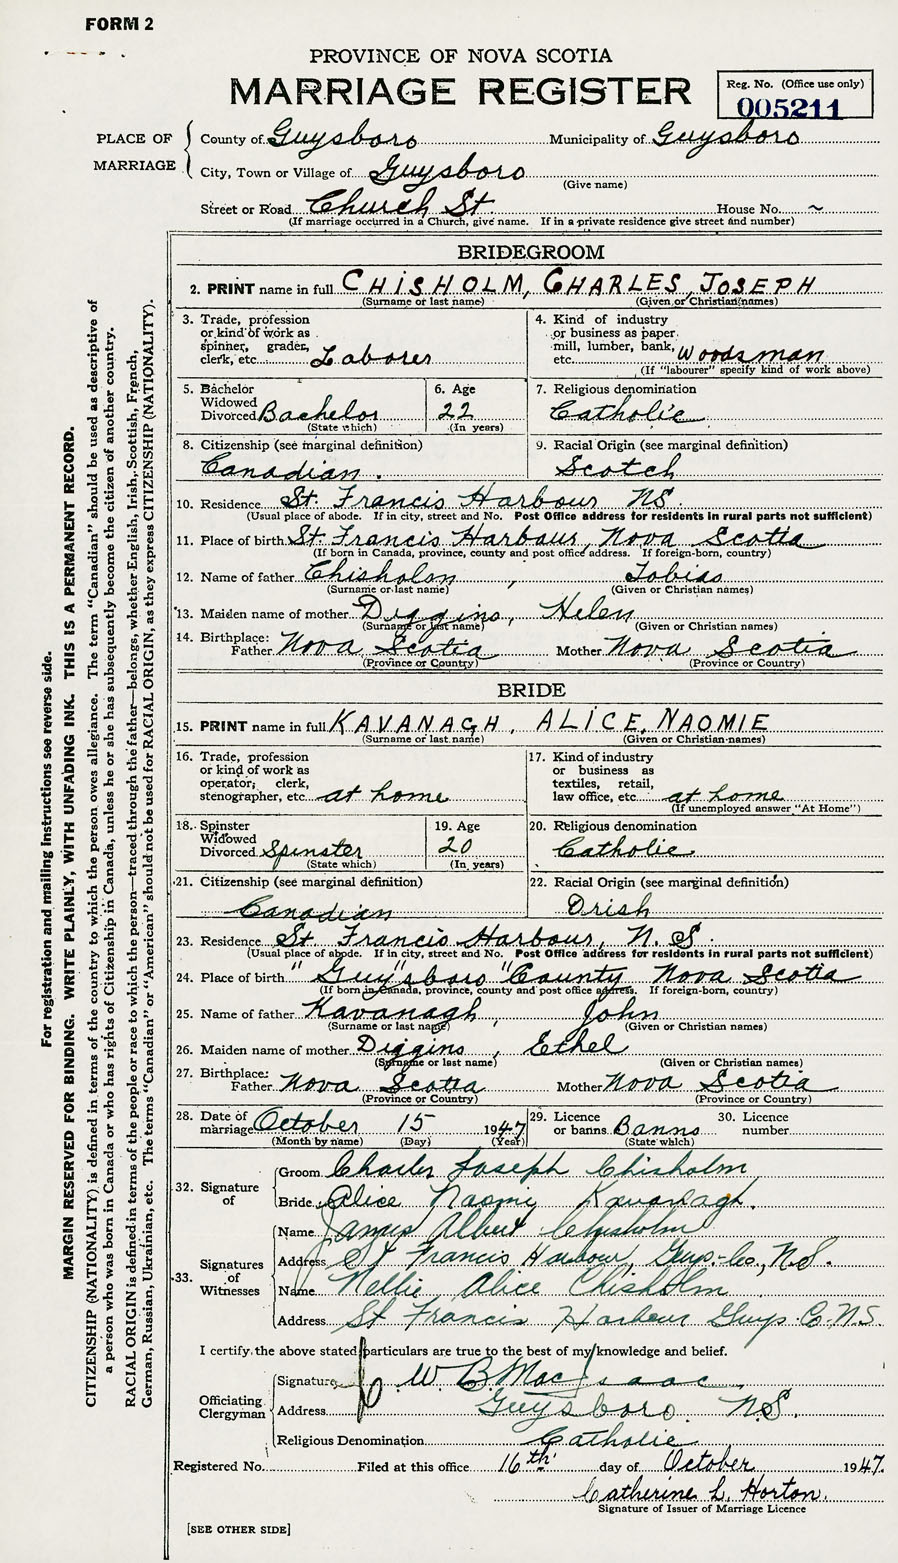 FORM 2
PROVINCE OF NOVA SCOTIA
MARRIAGE REGISTER
Reg. No. (Office use only)
005211
PLACE OF MARRIAGE
County of Guysboro Municipality of Guysboro
City, Town or Village of Guysboro
(Give name)
Street or Road Church St. House No. ~
(If marriage occurred in a Church, give name. If in a private residence give street and number)
BRIDEGROOM
2. PRINT name in full CHISHOLM, CHARLES JOSEPH
(Surname or last name) (Given or Christian names)
3. Trade, profession or kind of work as spinner, grader, clerk, etc. Laborer
4. Kind of industry or business as paper mill, lumber, bank, etc. Woodsman
(If "labourer" specify kind of work above)
5. Bachelor Widowed Divorced Bachelor
(State which)
6. Age 22
(In years)
7. Religious denomination
Catholic
8. Citizenship (see marginal definition)
Canadian.
9. Racial Origin (see marginal definition)
Scotch
10. Residence St. Francis Harbour NS.
(Usual place of abode. If in city, street and No. Post Office address for residents in rural parts not sufficient)
11. Place of birth St Francis Harbour, Nova Scotia
(If born in Canada, province, county and post office address. If foreign-born, country)
12. Name of father Chisholm, Tobias
(Surname or last name) (Given or Christian names)
13. Maiden name of mother Diggins, Helen
(Surname or last name) (Given or Christian names)
14. Birthplace: Father Nova Scotia Mother Nova Scotia
(Province or Country) (Province or Country)
BRIDE
15. PRINT name in full KAVANAGH, ALICE, NAOMIE
(Surname or last name) (Given or Christian names)
16. Trade, profession or kind of work as operator, clerk, stenographer, etc. at home
17. Kind of industry or business as textiles, retail, law office, etc. at home
(If unemployed answer "At Home")
18. Spinster Widowed Divorced Spinster
(State which)
19. Age 20
(In years)
20. Religious denomination
Catholic
21. Citizenship (see marginal definition)
Canadian
22. Racial Origin (see marginal definition)
Irish
23. Residence St. Francis Harbour, N.S.
(Usual place of abode. If in city, street and No. Post Office address for residents in rural parts not sufficient)
24. Place of birth " Guy"sboro "County Nova Scotia
(If born in Canada, province, county and post office address. If foreign-born, country)
25. Name of father Kavanagh, John
(Surname or last name) (Given or Christian names)
26. Maiden name of mother Diggins, Ethel
(Surname or last name) (Given or Christian names)
27. Birthplace: Father Nova Scotia Mother Nova Scotia
(Province or Country) (Province or Country)
28. Date of marriage October 15 1947
(Month by name) (Day) (Year)
29. Licence or banns Banns
(State which)
30. Licence number
32. Signature of
Groom Charles Joseph Chisholm
Bride Alice Naomi Kavanagh.
33. Signatures of Witnesses
Name James Albert Chisholm
Address St Francis Harbour, Guys. Co., N.S.
Name Nellie Alice Chisholm
Address St Francis Harbour Guys. C. N.S.
I certify the above stated particulars are true to the best of my knowledge and belief.
Officiating Clergyman
Signature W B MacIsaac
Address Guysboro. N.S.
Religious Denomination Catholic
Registered No. Filed at this office 16th day of October 1947.
Catherine L. Horton.
Signature of Issuer of Marriage Licence
[SEE OTHER SIDE]
For registration and mailing instructions see reverse side.
MARGIN RESERVED FOR BINDING. WRITE PLAINLY, WITH UNFADING INK. THIS IS A PERMANENT RECORD.
CITIZENSHIP (NATIONALITY) is defined in terms of the country to which the person owes allegiance. The term "Canadian" should be used as descriptive of
a person who was born in Canada or who has rights of Citizenship in Canada, unless he or she has subsequently become the citizen of another country.
RACIAL ORIGIN is defined in terms of the people or race to which the person—traced through the father—belongs, whether English, Irish, Scottish, French,
German, Russian, Ukrainian, etc. The terms "Canadian" or "American" should not be used for RACIAL ORIGIN, as they express CITIZENSHIP (NATIONALITY).